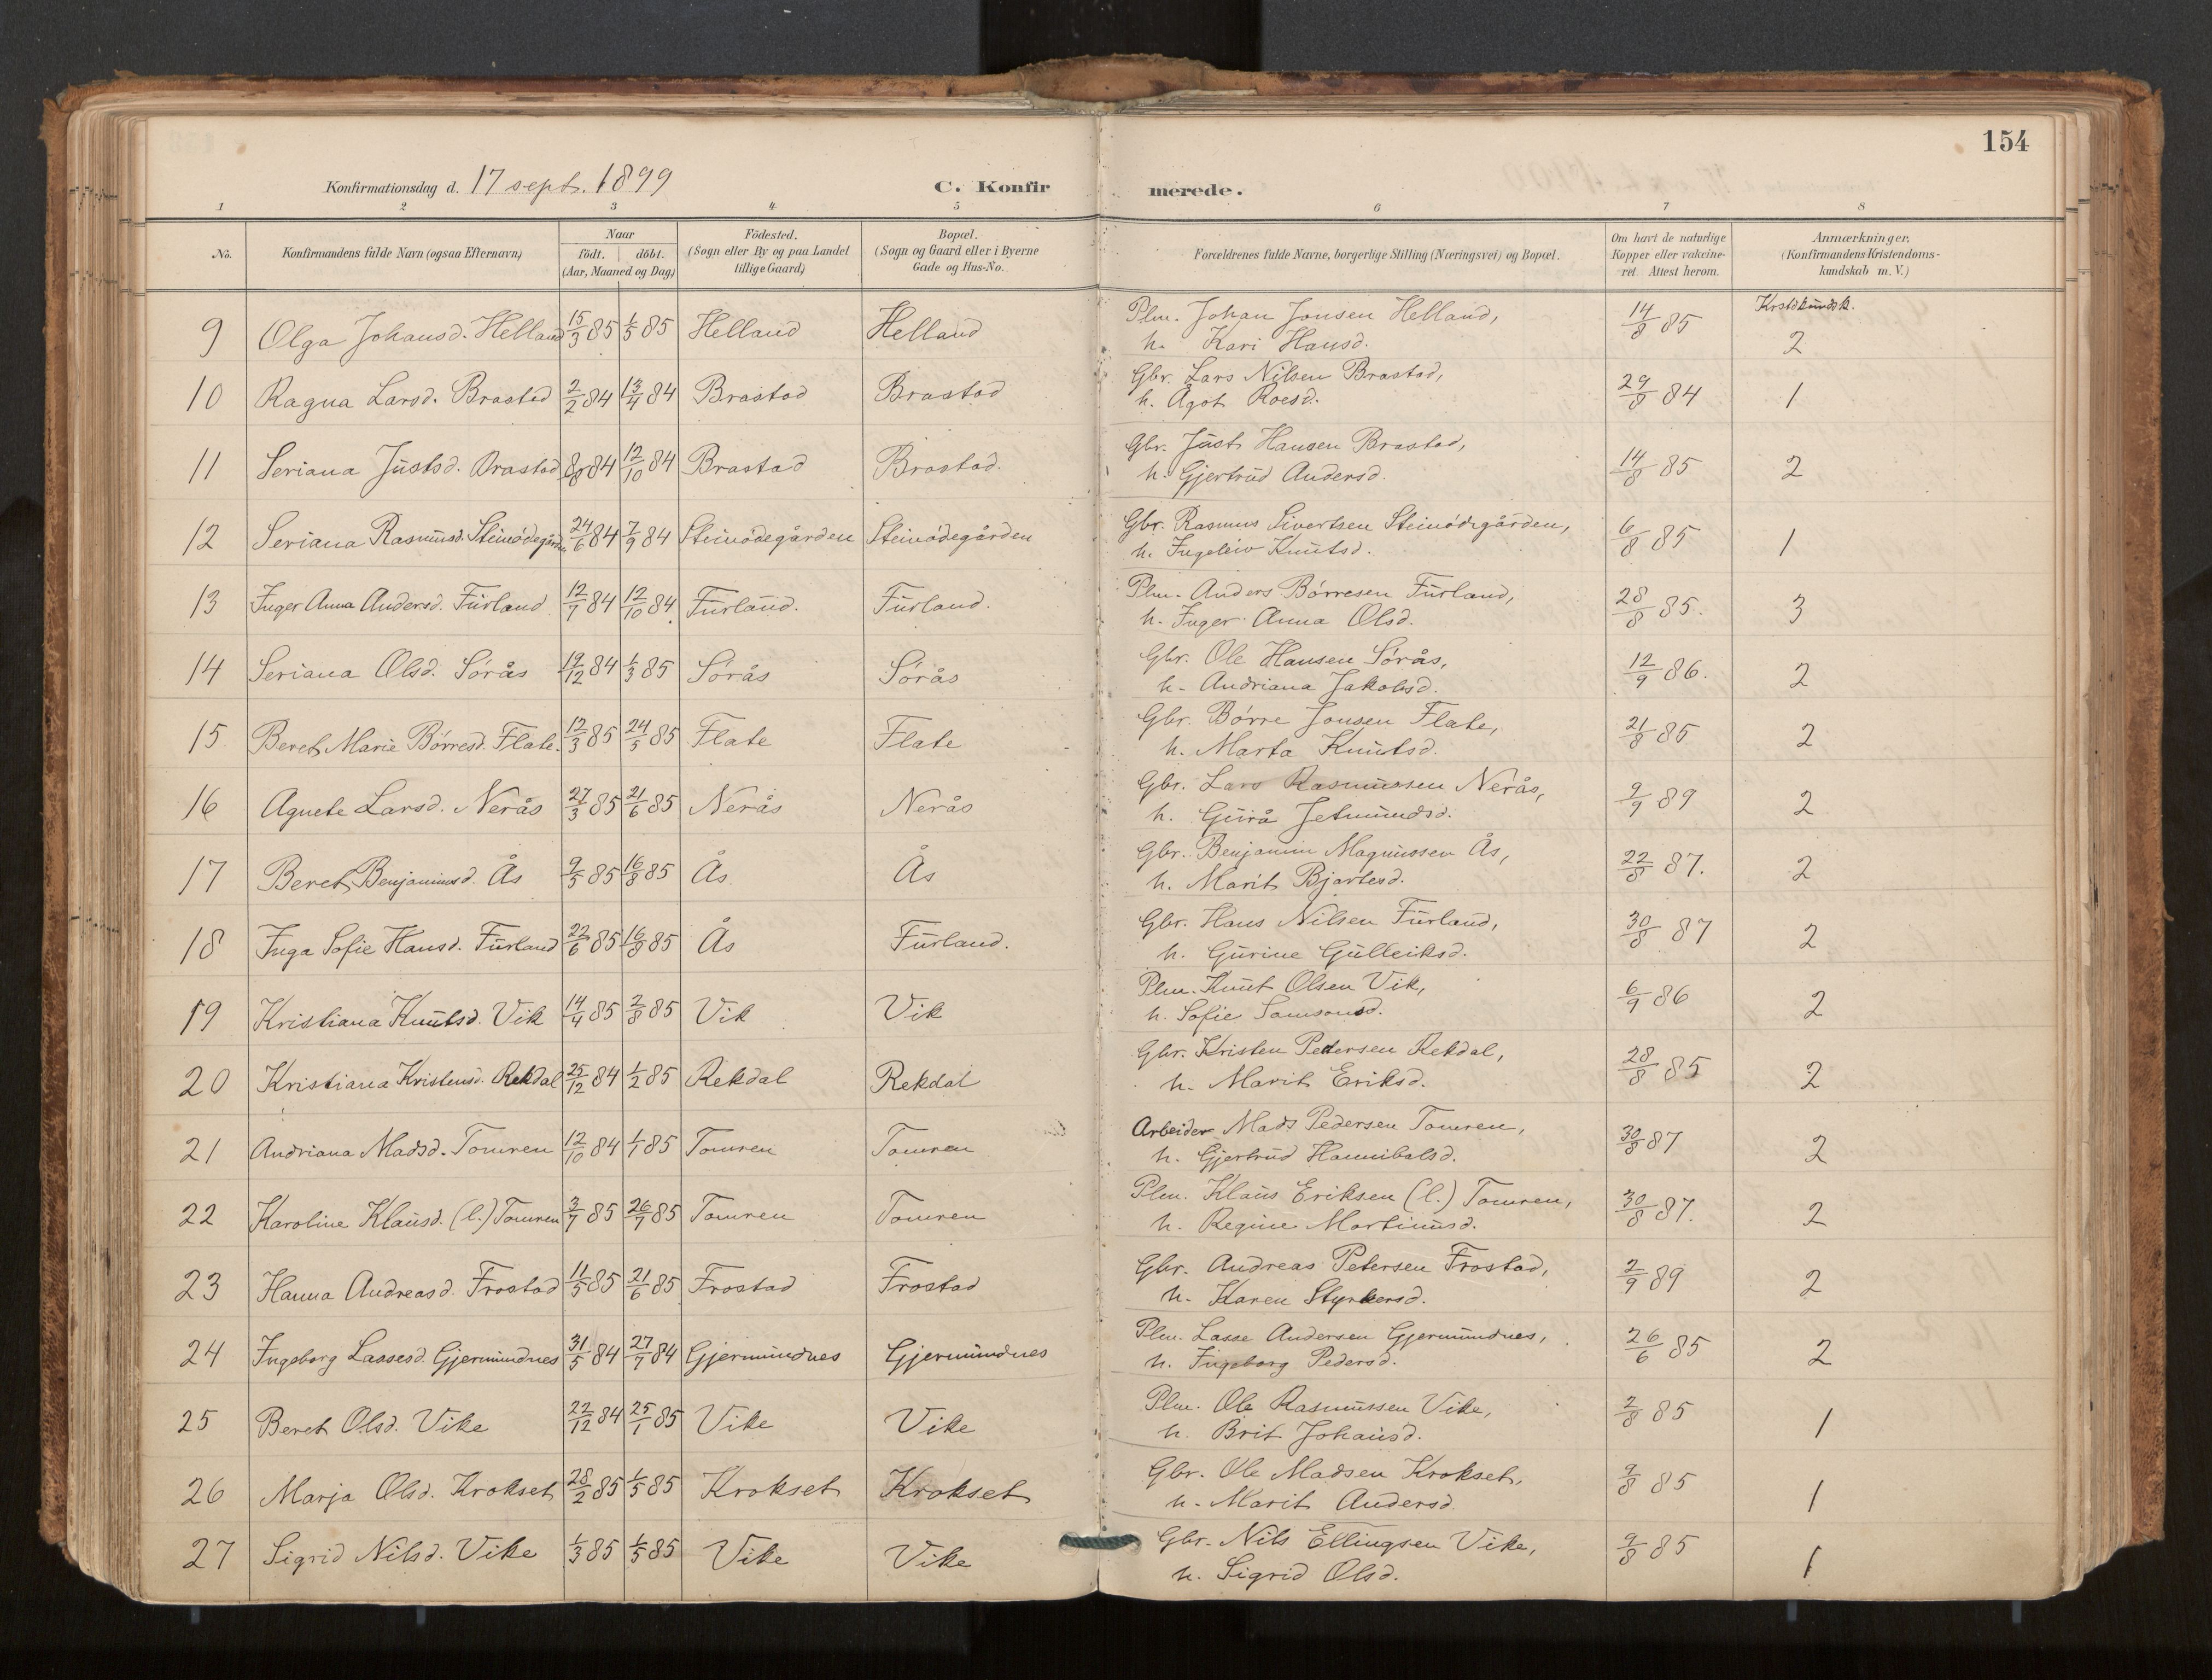 154
Konfirmationsdag d. 17 sept. 1899
C. Konfirmerede.
1 2 3 4 5 6 7 8
No. Konfirmandens fulde Navn (ogsaa Efternavn) Naar födt. döbt. (Aar, Maaned og Dag) Födested. (Sogn eller By og paa Landet tillige Gaard) Bopæl. (Sogn og Gaard eller i Byerne Gade og Hus-No. Forældrenes fulde Navne, borgerlige Stilling (Næringsvei) og Bopæl. Om havt de naturlige Kopper eller vakcineret. Attest herom. Anmærkninger. (Konfirmandens Kristendomskundskab m. V.)
Krstdkundsk.
9 Olga Johansd. Helland 15/3 85 1/5 85 Helland Helland Plm. Johan Jonsen Helland, 14/8 85 2
h. Kari Hansd.
10 Ragna Larsd. Brastad 2/2 84 13/4 84 Brastad Brastad Gbr. Lars Nilsen Brastad, 29/8 84 1
h. Agot Roesd.
11 Seriana Justsd. Brastad 8/8 84 12/10 84 Brastad Brastad. Gbr. Just Hansen Brastad, 14/8 85 2
h. Gjertrud Andersd.
12 Seriana Rasmusd. Steinødegården 24/6 84 7/9 84 Steinødegården Steinødegården Gbr. Rasmus Sivertsen Steinødegården, 6/8 85 1
h. Ingeleiv Knutsd.
13 Inger Anna Andersd. Furland 12/7 84 12/10 84. Furland. Furland. Plm. Anders Børresen Furland, 28/8 85. 3
h. Inger Anna Olsd.
14 Seriana Olsd. Sørås 19/12 84 1/3 85 Sørås Sørås Gbr. Ole Hansen Sørås, 12/9 86. 2
h. Andriana Jakobsd.
15 Beret Marie Børresd. Flate. 12/3 85 24/5 85 Flate Flate Gbr. Børre Jonsen Flate, 21/8 85 2
h. Marta Knutsd.
16 Agnete Larsd. Nerås 27/3 85 21/6 85 Nerås Nerås Gbr. Lars Rasmussen Nerås, 9/9 89 2
h. Gurå Jetmundsd.
17 Beret Benjaminsd. Ås 9/5 85 16/8 85 Ås Ås Gbr. Benjamin Magnussen Ås, 22/8 87. 2
h. Marit Bjartesd.
18 Inga Sofie Hansd. Furland 22/6 85 16/8 85 Ås Furland. Gbr. Hans Nilsen Furland, 30/8 87 2
h. Gurine Gulleiksd.
19 Kristiana Knutsd. Vik 14/4 85 2/8 85 Vik Vik Plm. Knut Olsen Vik, 6/9 86 2
h. Sofie Samsonsd.
20 Kristiana Kristensd. Rekdal 25/12 84 1/2 85 Rekdal Rekdal Gbr. Kristen Pedersen Rekdal, 28/8 85 2
h. Marit Eriksd.
21 Andriana Madsd. Tomren 12/10 84 1/1 85 Tomren Tomren Arbeider Mads Pedersen Tomren, 30/8 87 2
h. Gjertrud Hannibalsd.
22 Karoline Klausd. (l.) Tomren 3/7 85 26/7 85 Tomren Tomren Plm. Klaus Eriksen (l.) Tomren, 30/8 87. 2
h. Regine Martinusd.
23 Hanna Andreasd. Frostad 11/5 85 21/6 85 Frostad Frostad Gbr. Andreas Petersen Frostad, 2/9 89 2
h. Karen Styrkersd.
24 Ingeborg Lassesd. Gjermundnes 31/5 84 27/7 84 Gjermundnes Gjermundnes Plm. Lasse Andersen Gjermundnes, 26/6 85 2
h. Ingeborg Pedersd.
25 Beret Olsd. Vike 22/12 84 25/1 85 Vike Vike Plm. Ole Rasmussen Vike, 2/8 85 1
h. Brit Johansd.
26 Marja Olsd. Krokset 28/2 85 1/5 85 Krokset Krokset Gbr. Ole Madsen Krokset, 9/8 85 1
h. Marit Andersd.
27 Sigrid Nilsd. Vike 1/3 85 1/5 85 Vike Vike Gbr. Nils Ellingsen Vike, 9/8 85 1
h. Sigrid Olsd.